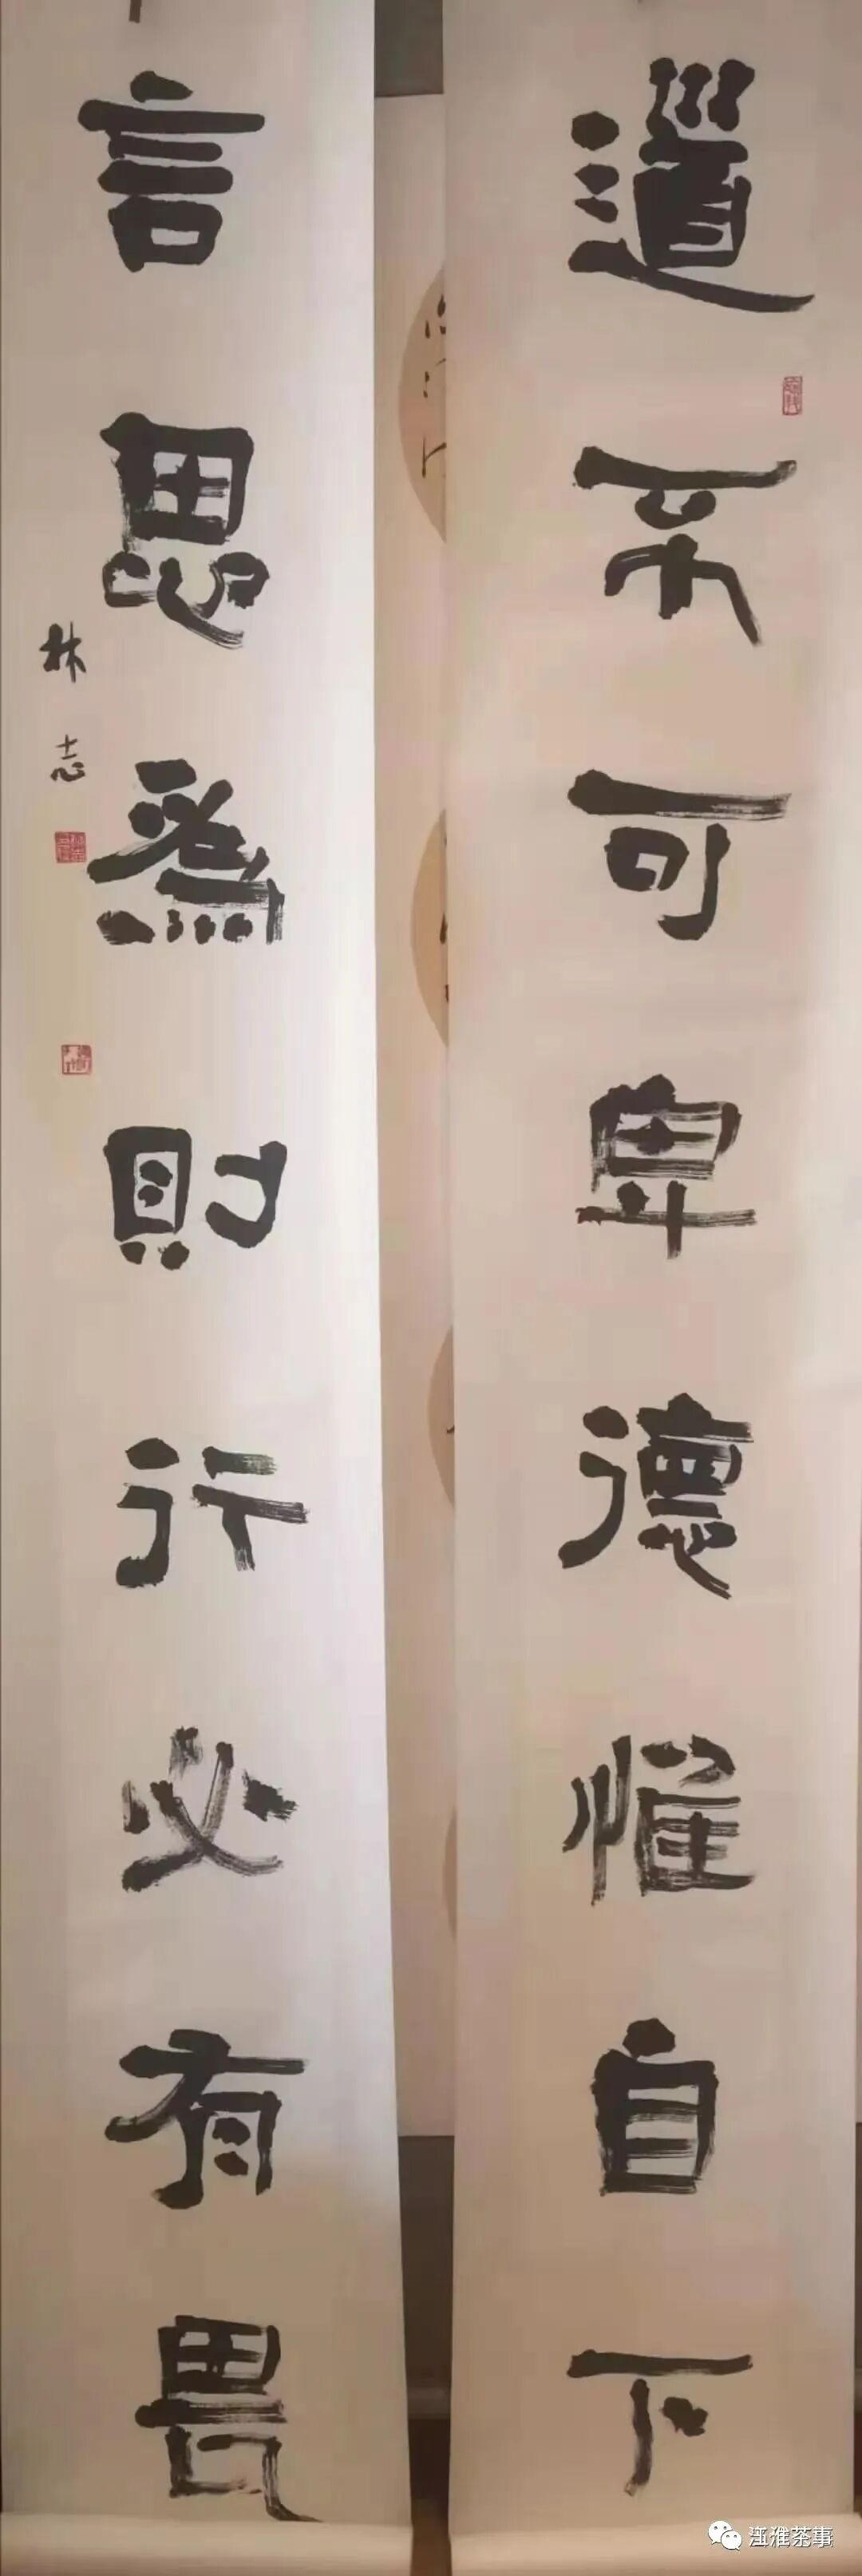 道不可卑德惟自下
言思為則行必有畏
林志
江淮茶事